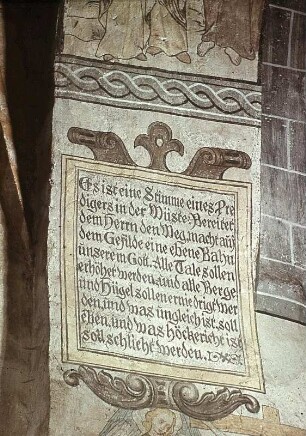 Es ist eine Stimme eines Pre
digers in der Wüste. Bereitet
dem Herrn den Weg, macht auf
dem Gefilde eine ebene Bahn
unserem Gott. Alle Tale sollen
erhöhet werden, und alle Berge
und Hügel sollen erniedrigt wer
den, und was ungleich ist, soll
eben, und was höckericht ist
soll schlicht werden.